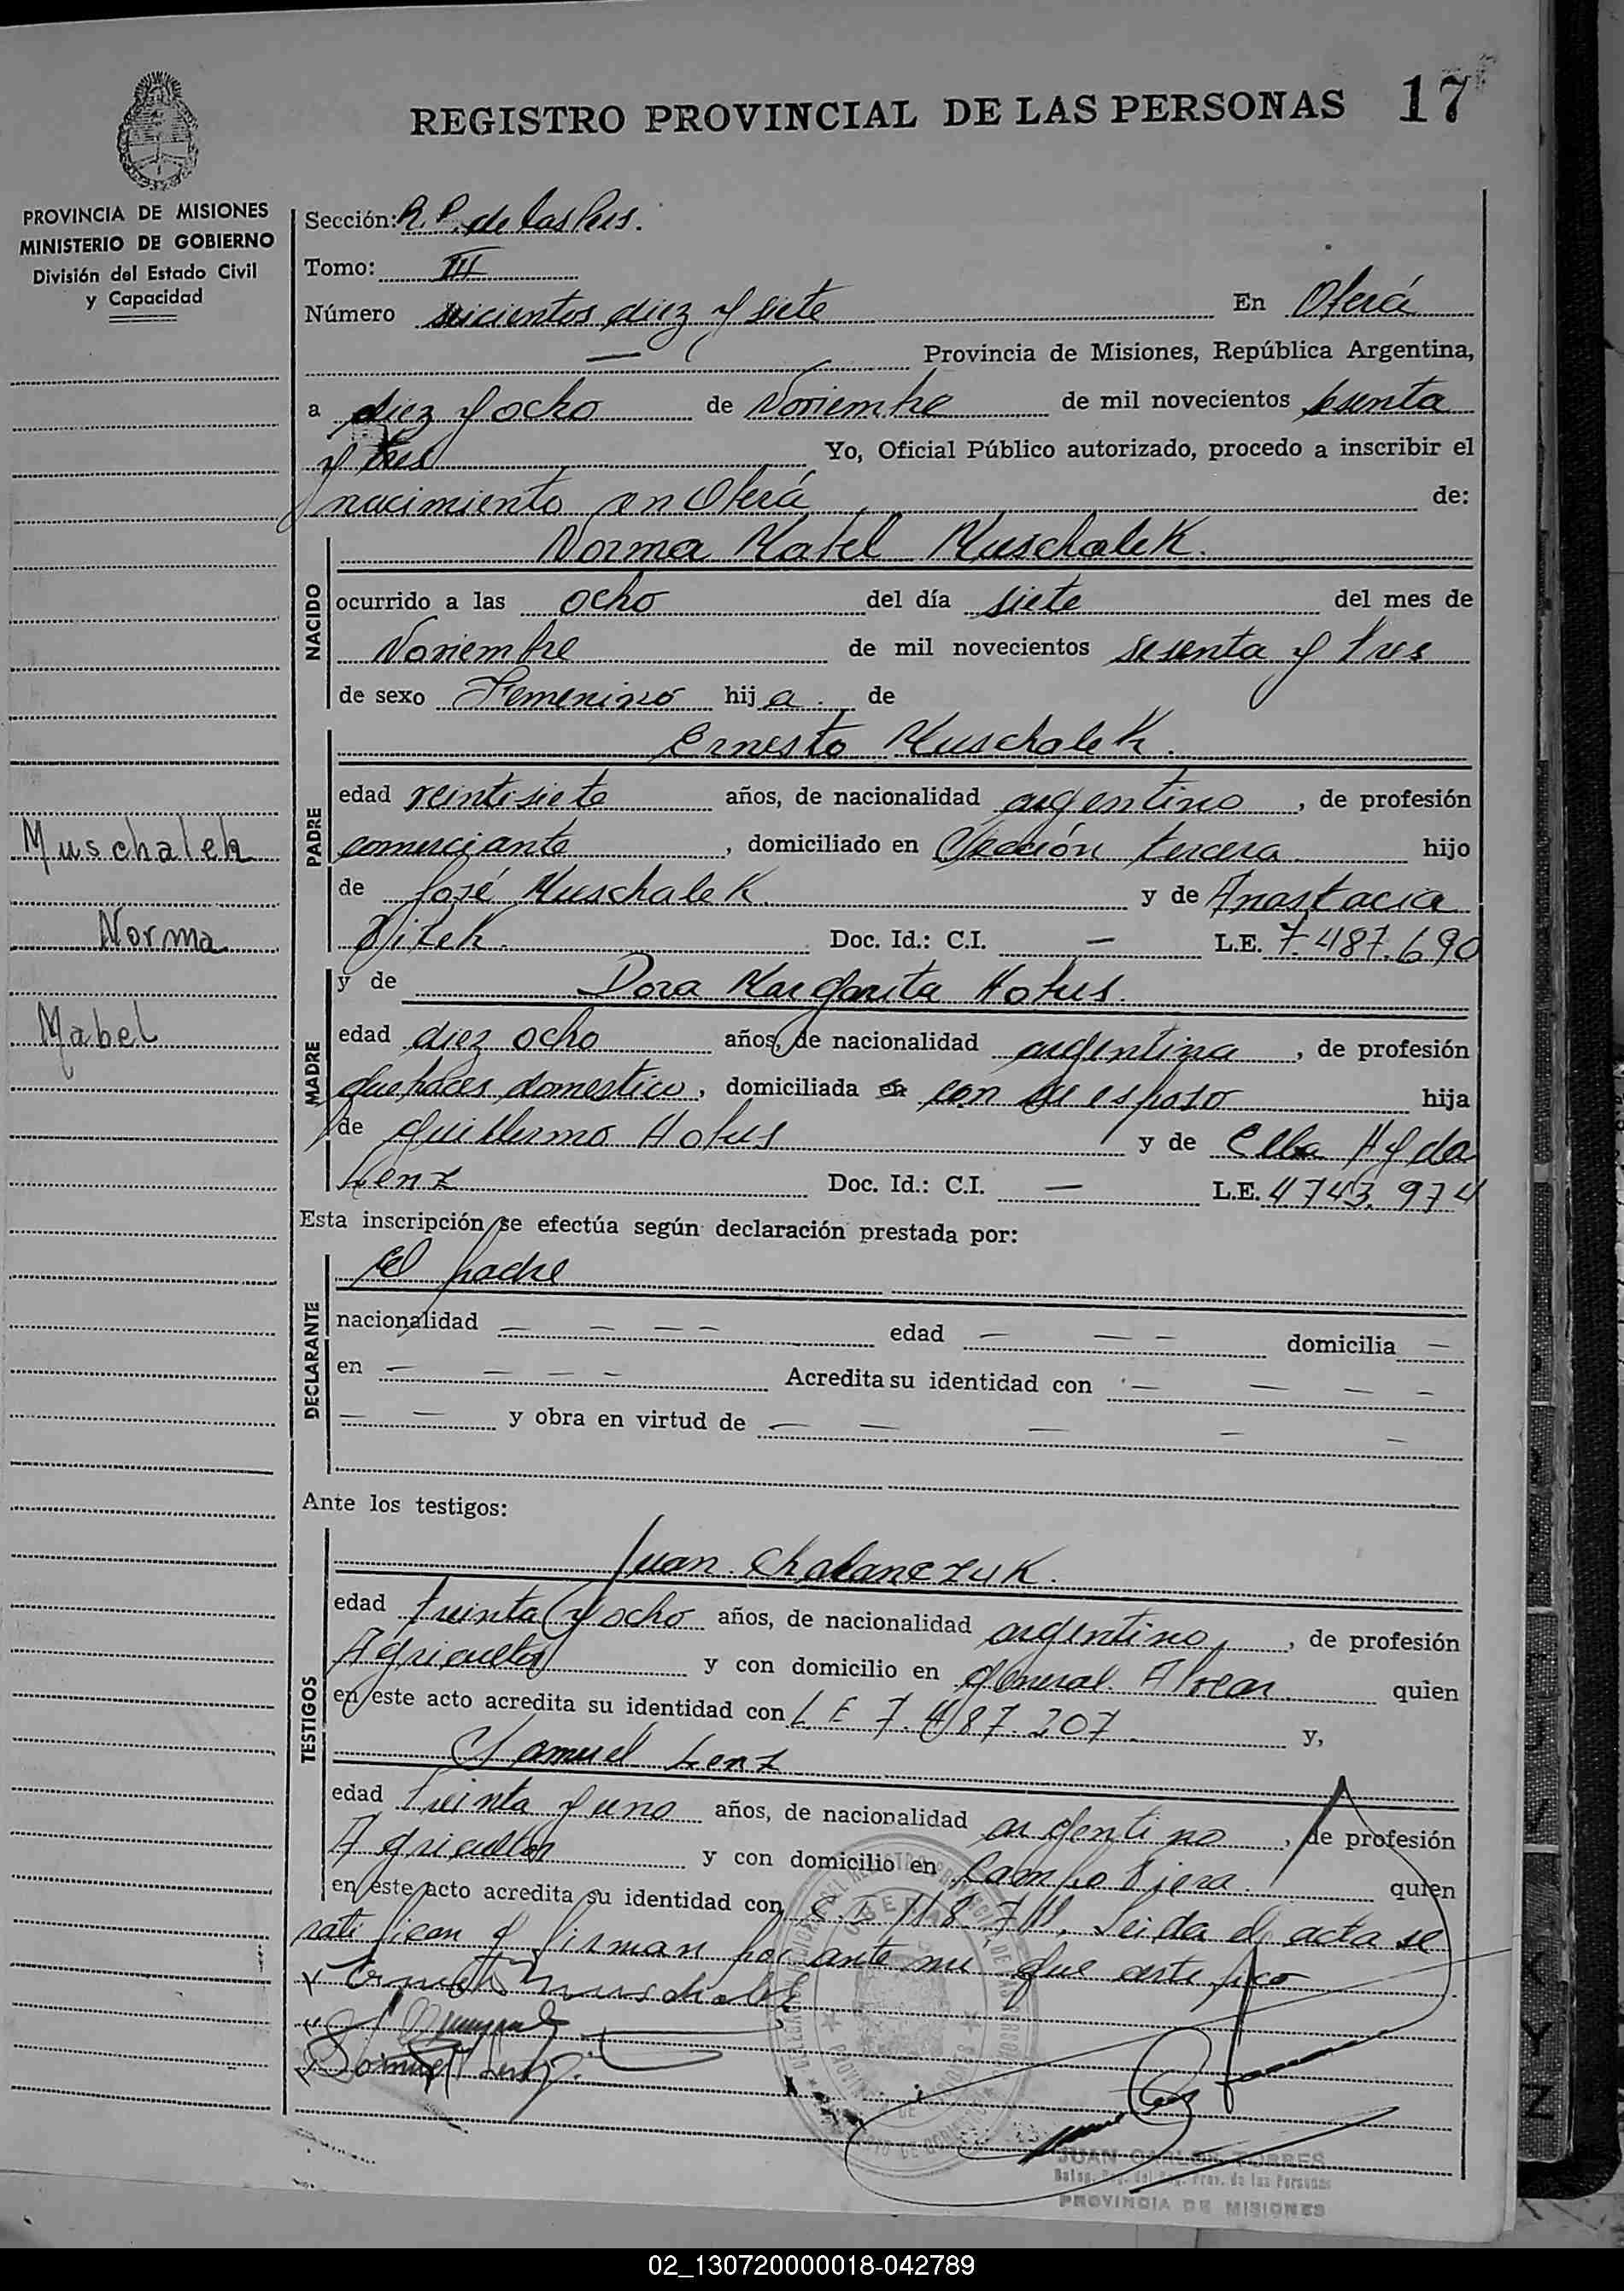 REGISTRO PROVINCIAL DE LAS PERSONAS 17
PROVINCIA DE MISIONES
MINISTERIO DE GOBIERNO
División del Estado Civil
y Capacidad
Muschalek
Norma
Mabel
Sección: R. P. de las Pers.
Tomo: III
Número seicientos diez y siete En Oberá
— Provincia de Misiones, República Argentina,
a diez y ocho de Noviembre de mil novecientos sesenta
y tres Yo, Oficial Público autorizado, procedo a inscribir el
nacimiento en Oberá de:
NACIDO
Norma Mabel Muschalek.
ocurrido a las ocho del día siete del mes de
Noviembre de mil novecientos sesenta y tres
de sexo Femenino hija. de
PADRE
Ernesto Muschalek.
edad veintisiete años, de nacionalidad argentino, de profesión
comerciante, domiciliado en Sección tercera hijo
de José Muschalek. y de Anastacia
Doc. Id.: C.I. — L.E. 7.487.690
MADRE
y de Dora Margarita
edad diez ocho años, de nacionalidad argentina, de profesión
quehaces domestico, domiciliada en con su esposo hija
de Guillermo y de Elba Hyda
Lenz Doc. Id.: C.I. — L.E. 4.743.974
Esta inscripción se efectúa según declaración prestada por:
DECLARANTE
El padre
nacionalidad — — — — edad — — — domicilia —
en — — — — Acredita su identidad con — — — —
— — y obra en virtud de — — — — —
Ante los testigos:
TESTIGOS
Juan
edad treinta y ocho años, de nacionalidad argentino, de profesión
Agricultor y con domicilio en General Alvear quien
en este acto acredita su identidad con L E 7.487.207 y,
Samuel Lenz
edad treinta y uno años, de nacionalidad argentino, de profesión
Agricultor y con domicilio en Campo Viera. quien
en este acto acredita su identidad con Leida el acta se
ratifican y firman por ante mi que certifico
Ernesto Muschalek
Samuel Lenz
JUAN CARLOS TORRES
Deleg. Reg. del Reg. Prov. de las Personas
PROVINCIA DE MISIONES
K
Y
Z
02_130720000018-042789